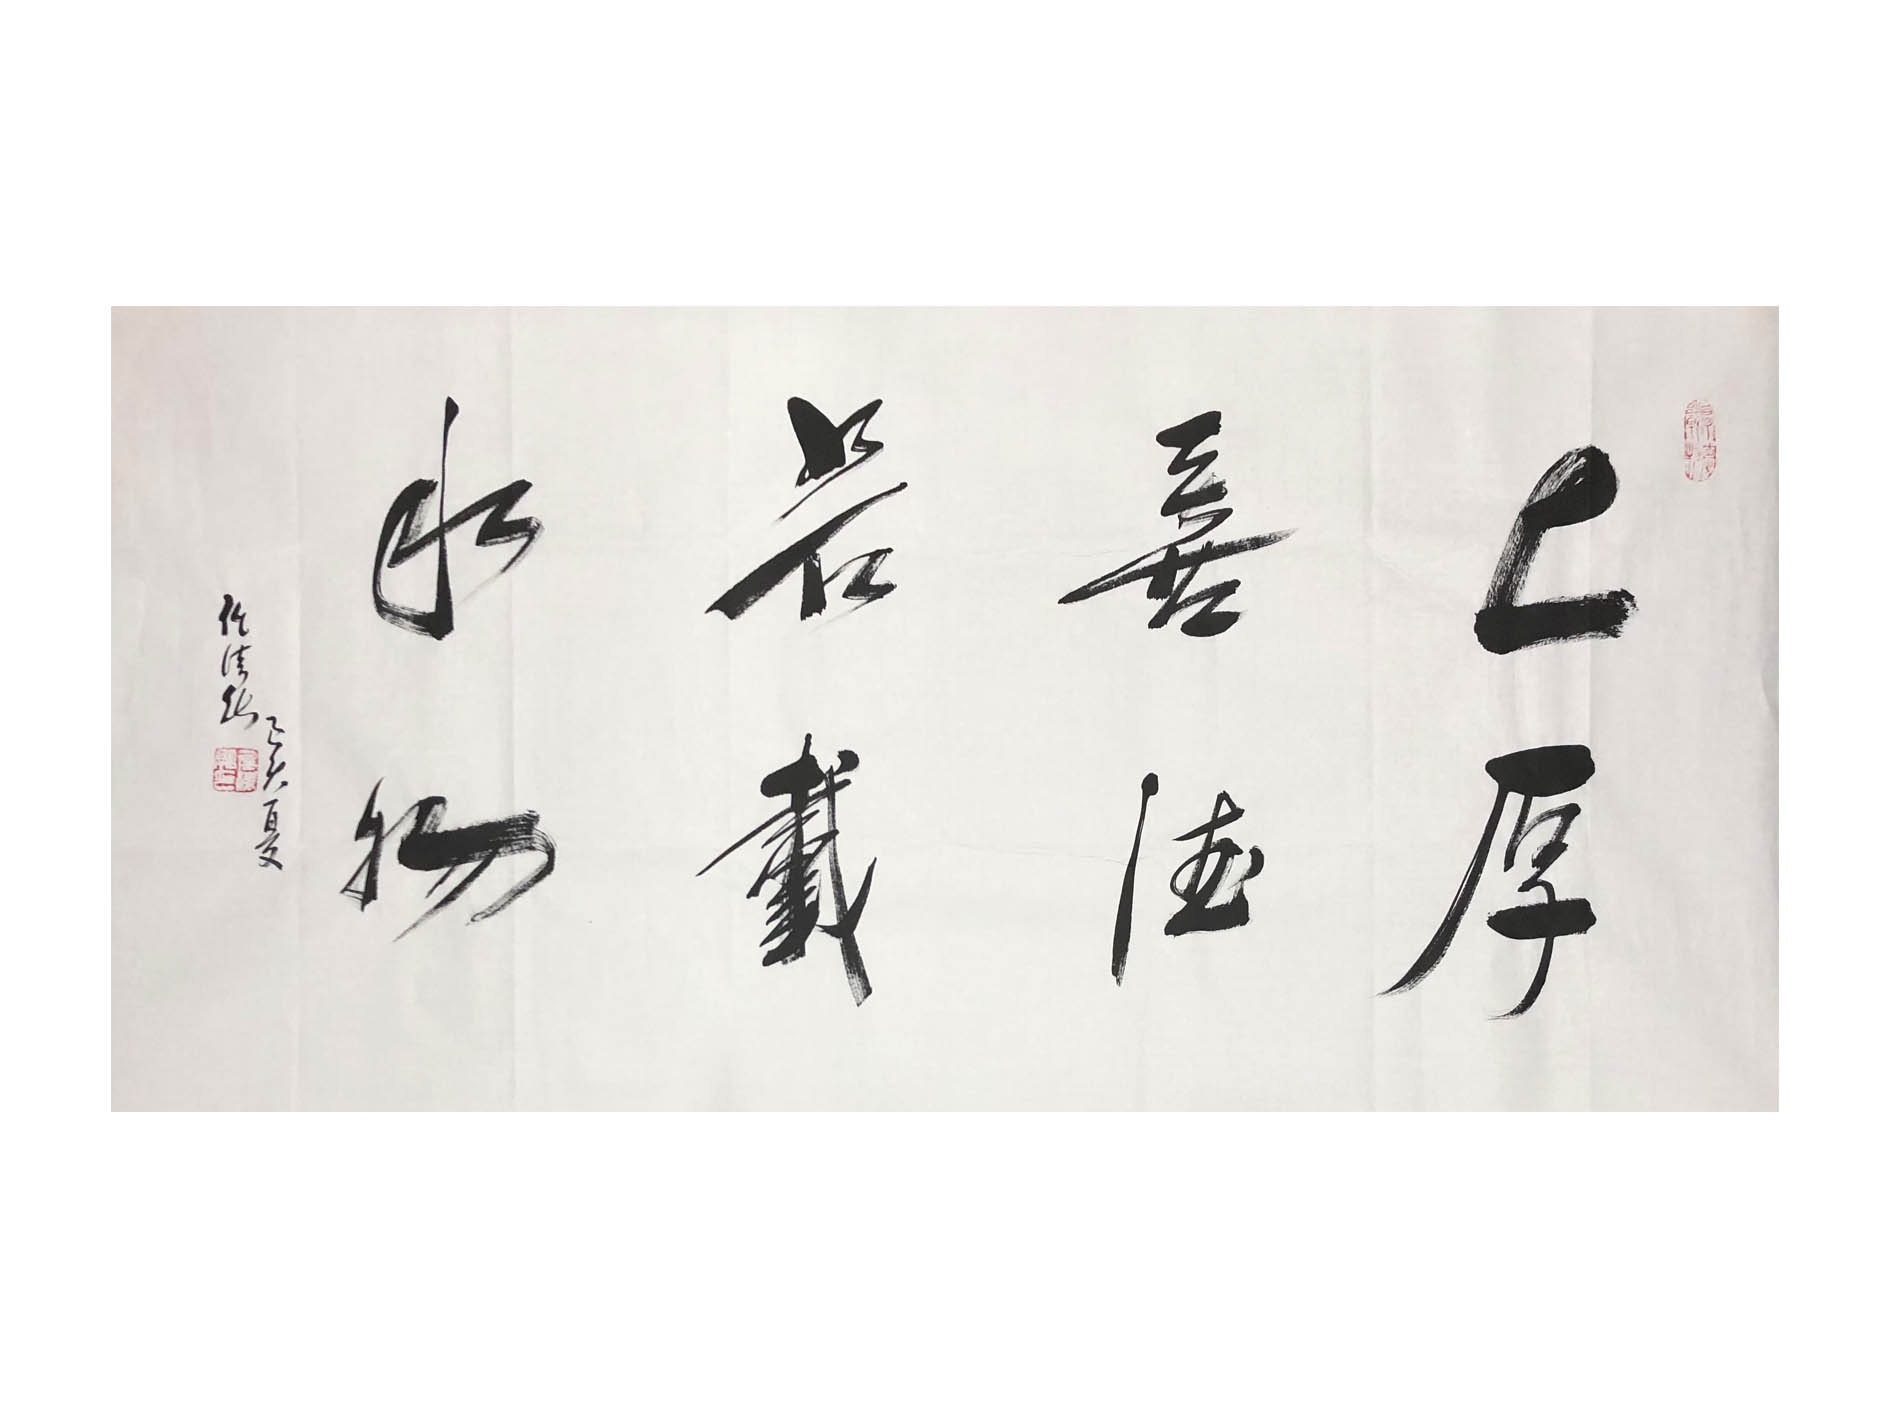 上善若水
厚德載物
己亥夏